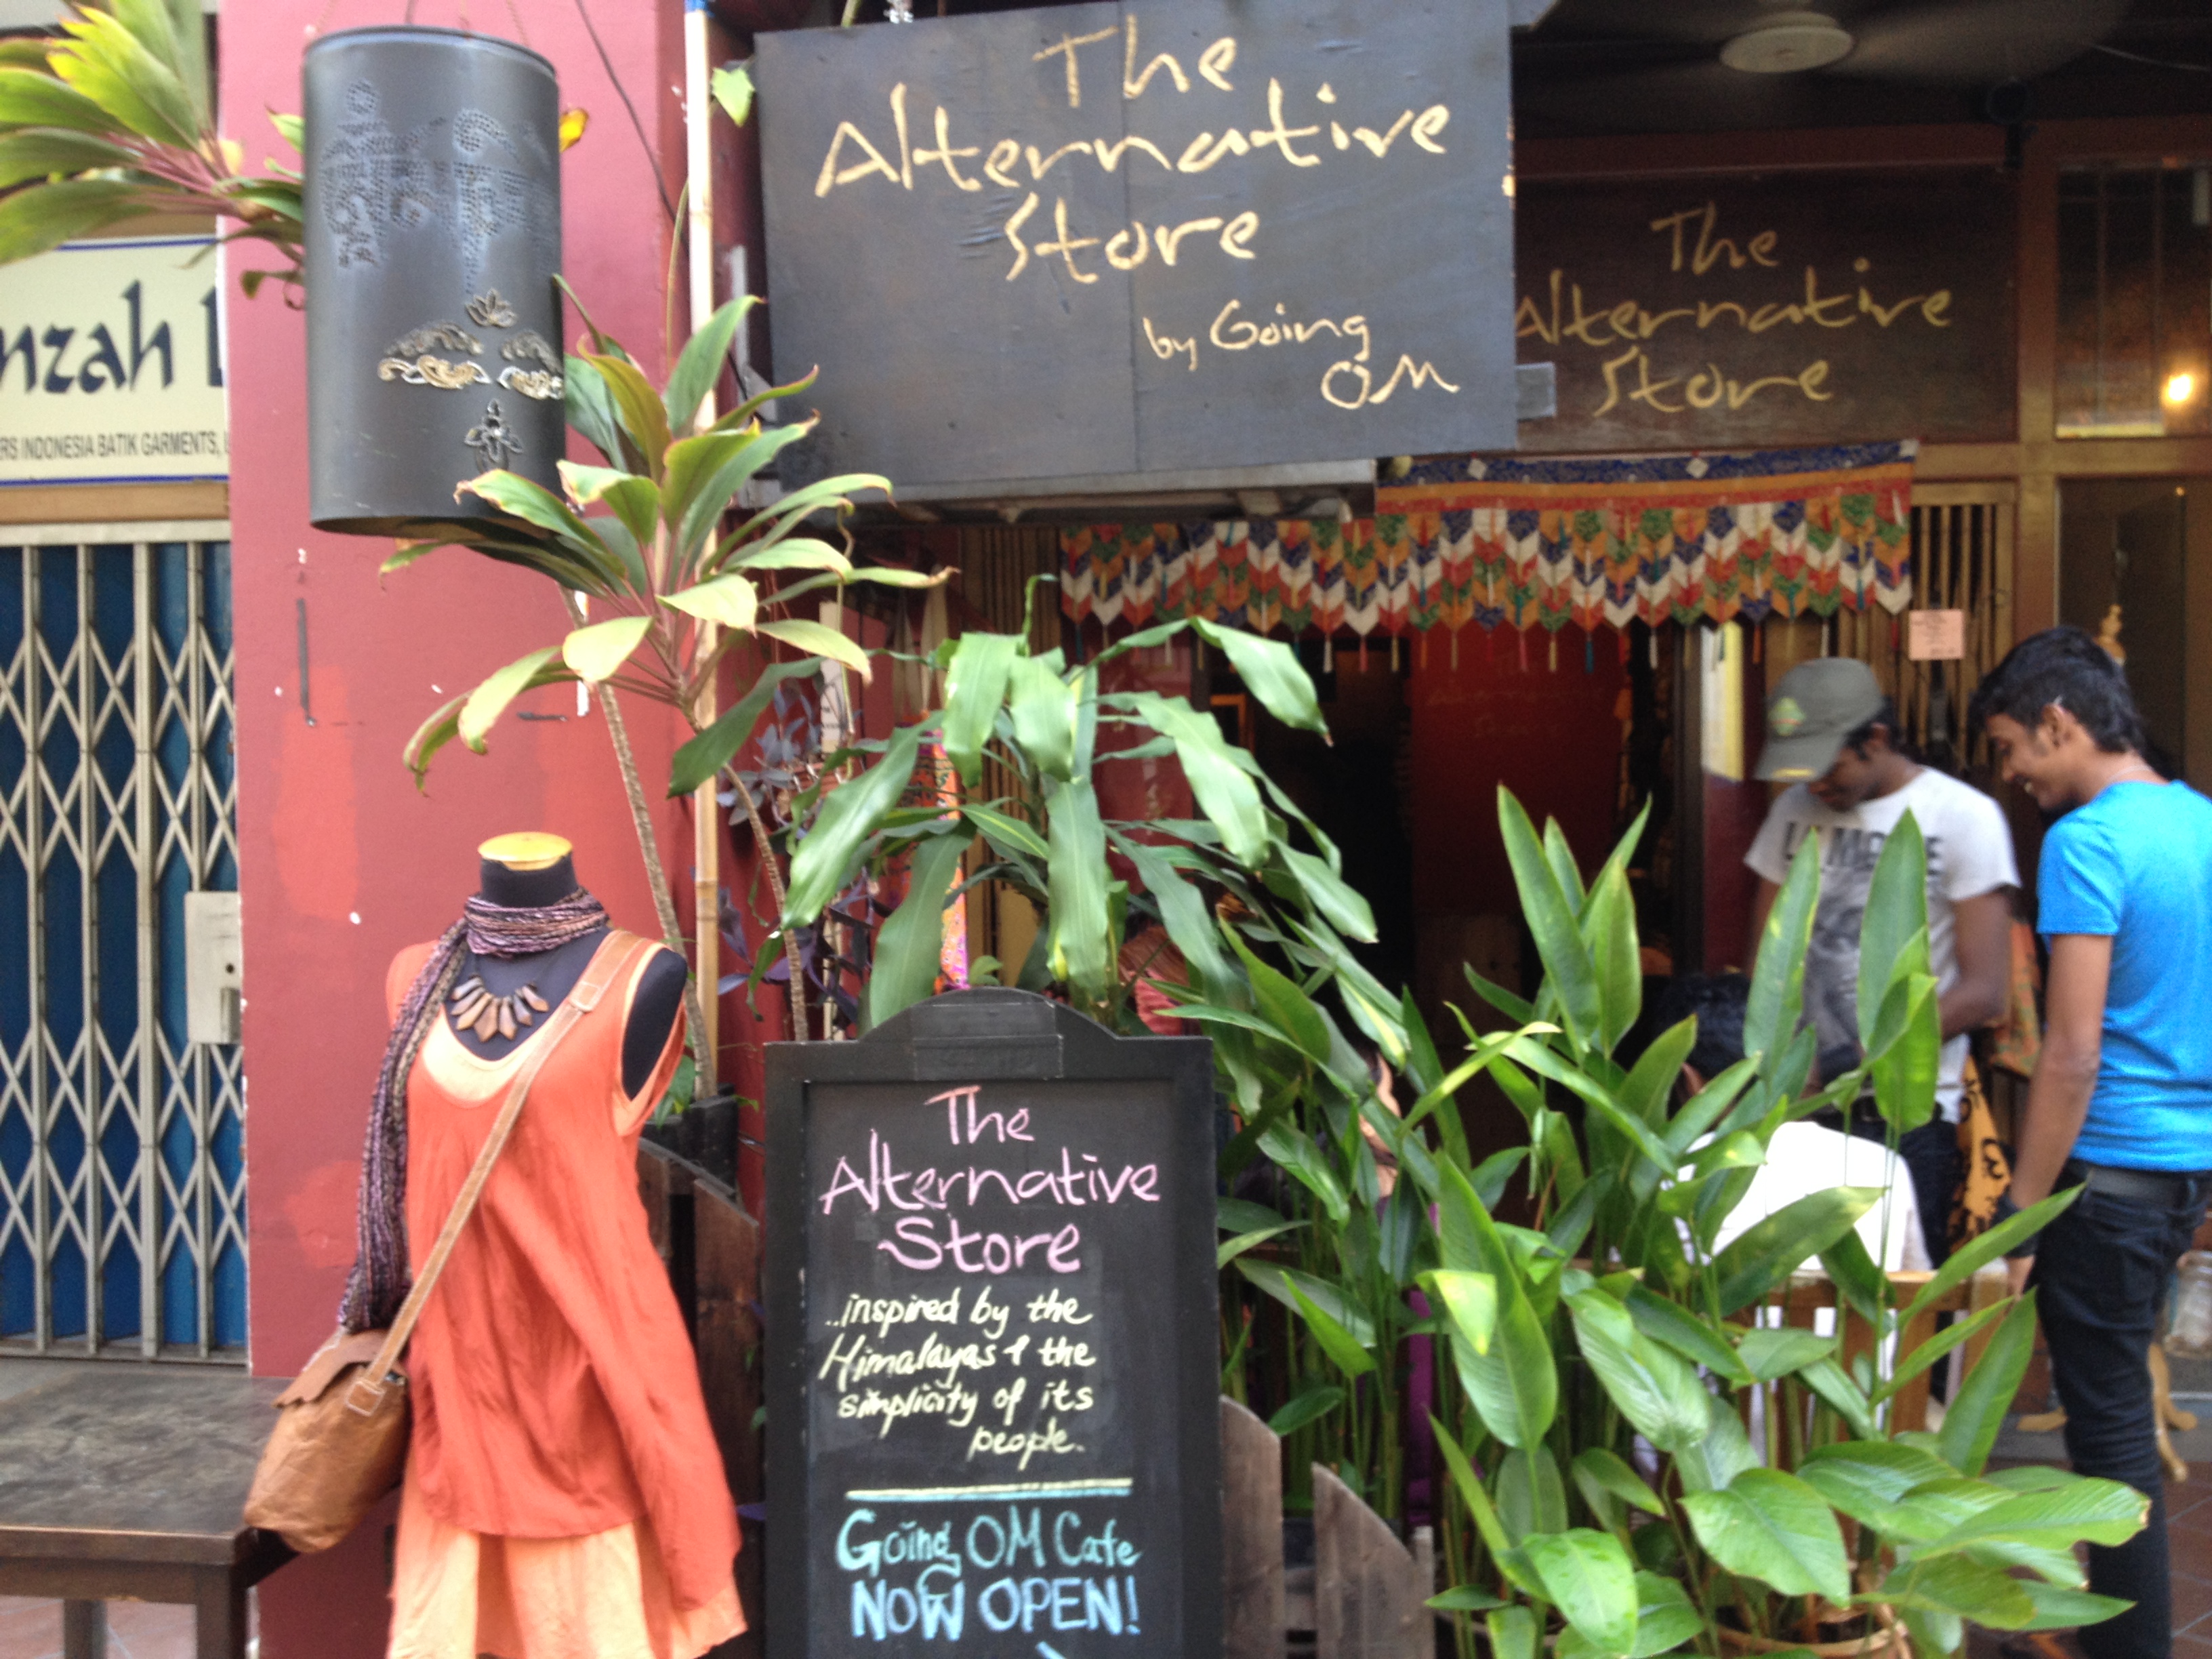 The
Alternative
Store
by Going
OM
The
Alternative
Store
nzah
RS INDONESIA BATIK GARMENTS,
The
Alternative
Store
..inspired by the
Himalayas & the
simplicity of its
people.
Going OM Cafe
NOW OPEN!